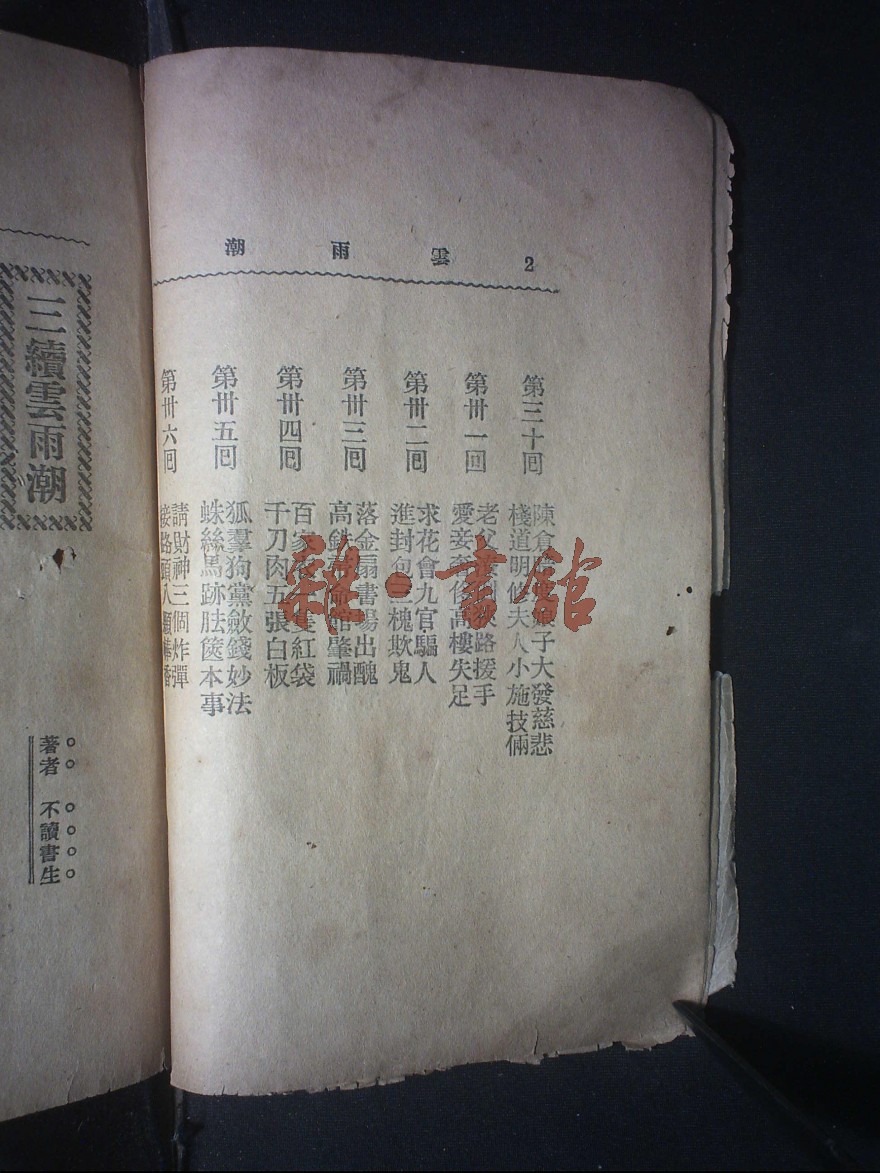 2 雲雨潮
第三十回
陳倉 娘子大發慈悲
棧道明修夫人小施技倆
第卅一回
老父 路援手
愛妾 高樓失足
第卅二回
求花會九官騙人
進封包三槐欺鬼
第卅三回
落金扇書場出醜
高鉄 館肇禍
第卅四回
百家 隻紅袋
千刀肉五張白板
第卅五回
狐羣狗黨斂錢妙法
蛛絲馬跡胠篋本事
第卅六回
請財神三個炸彈
接路頭 香
三續雲雨潮
著者 不讀書生
雜·書館